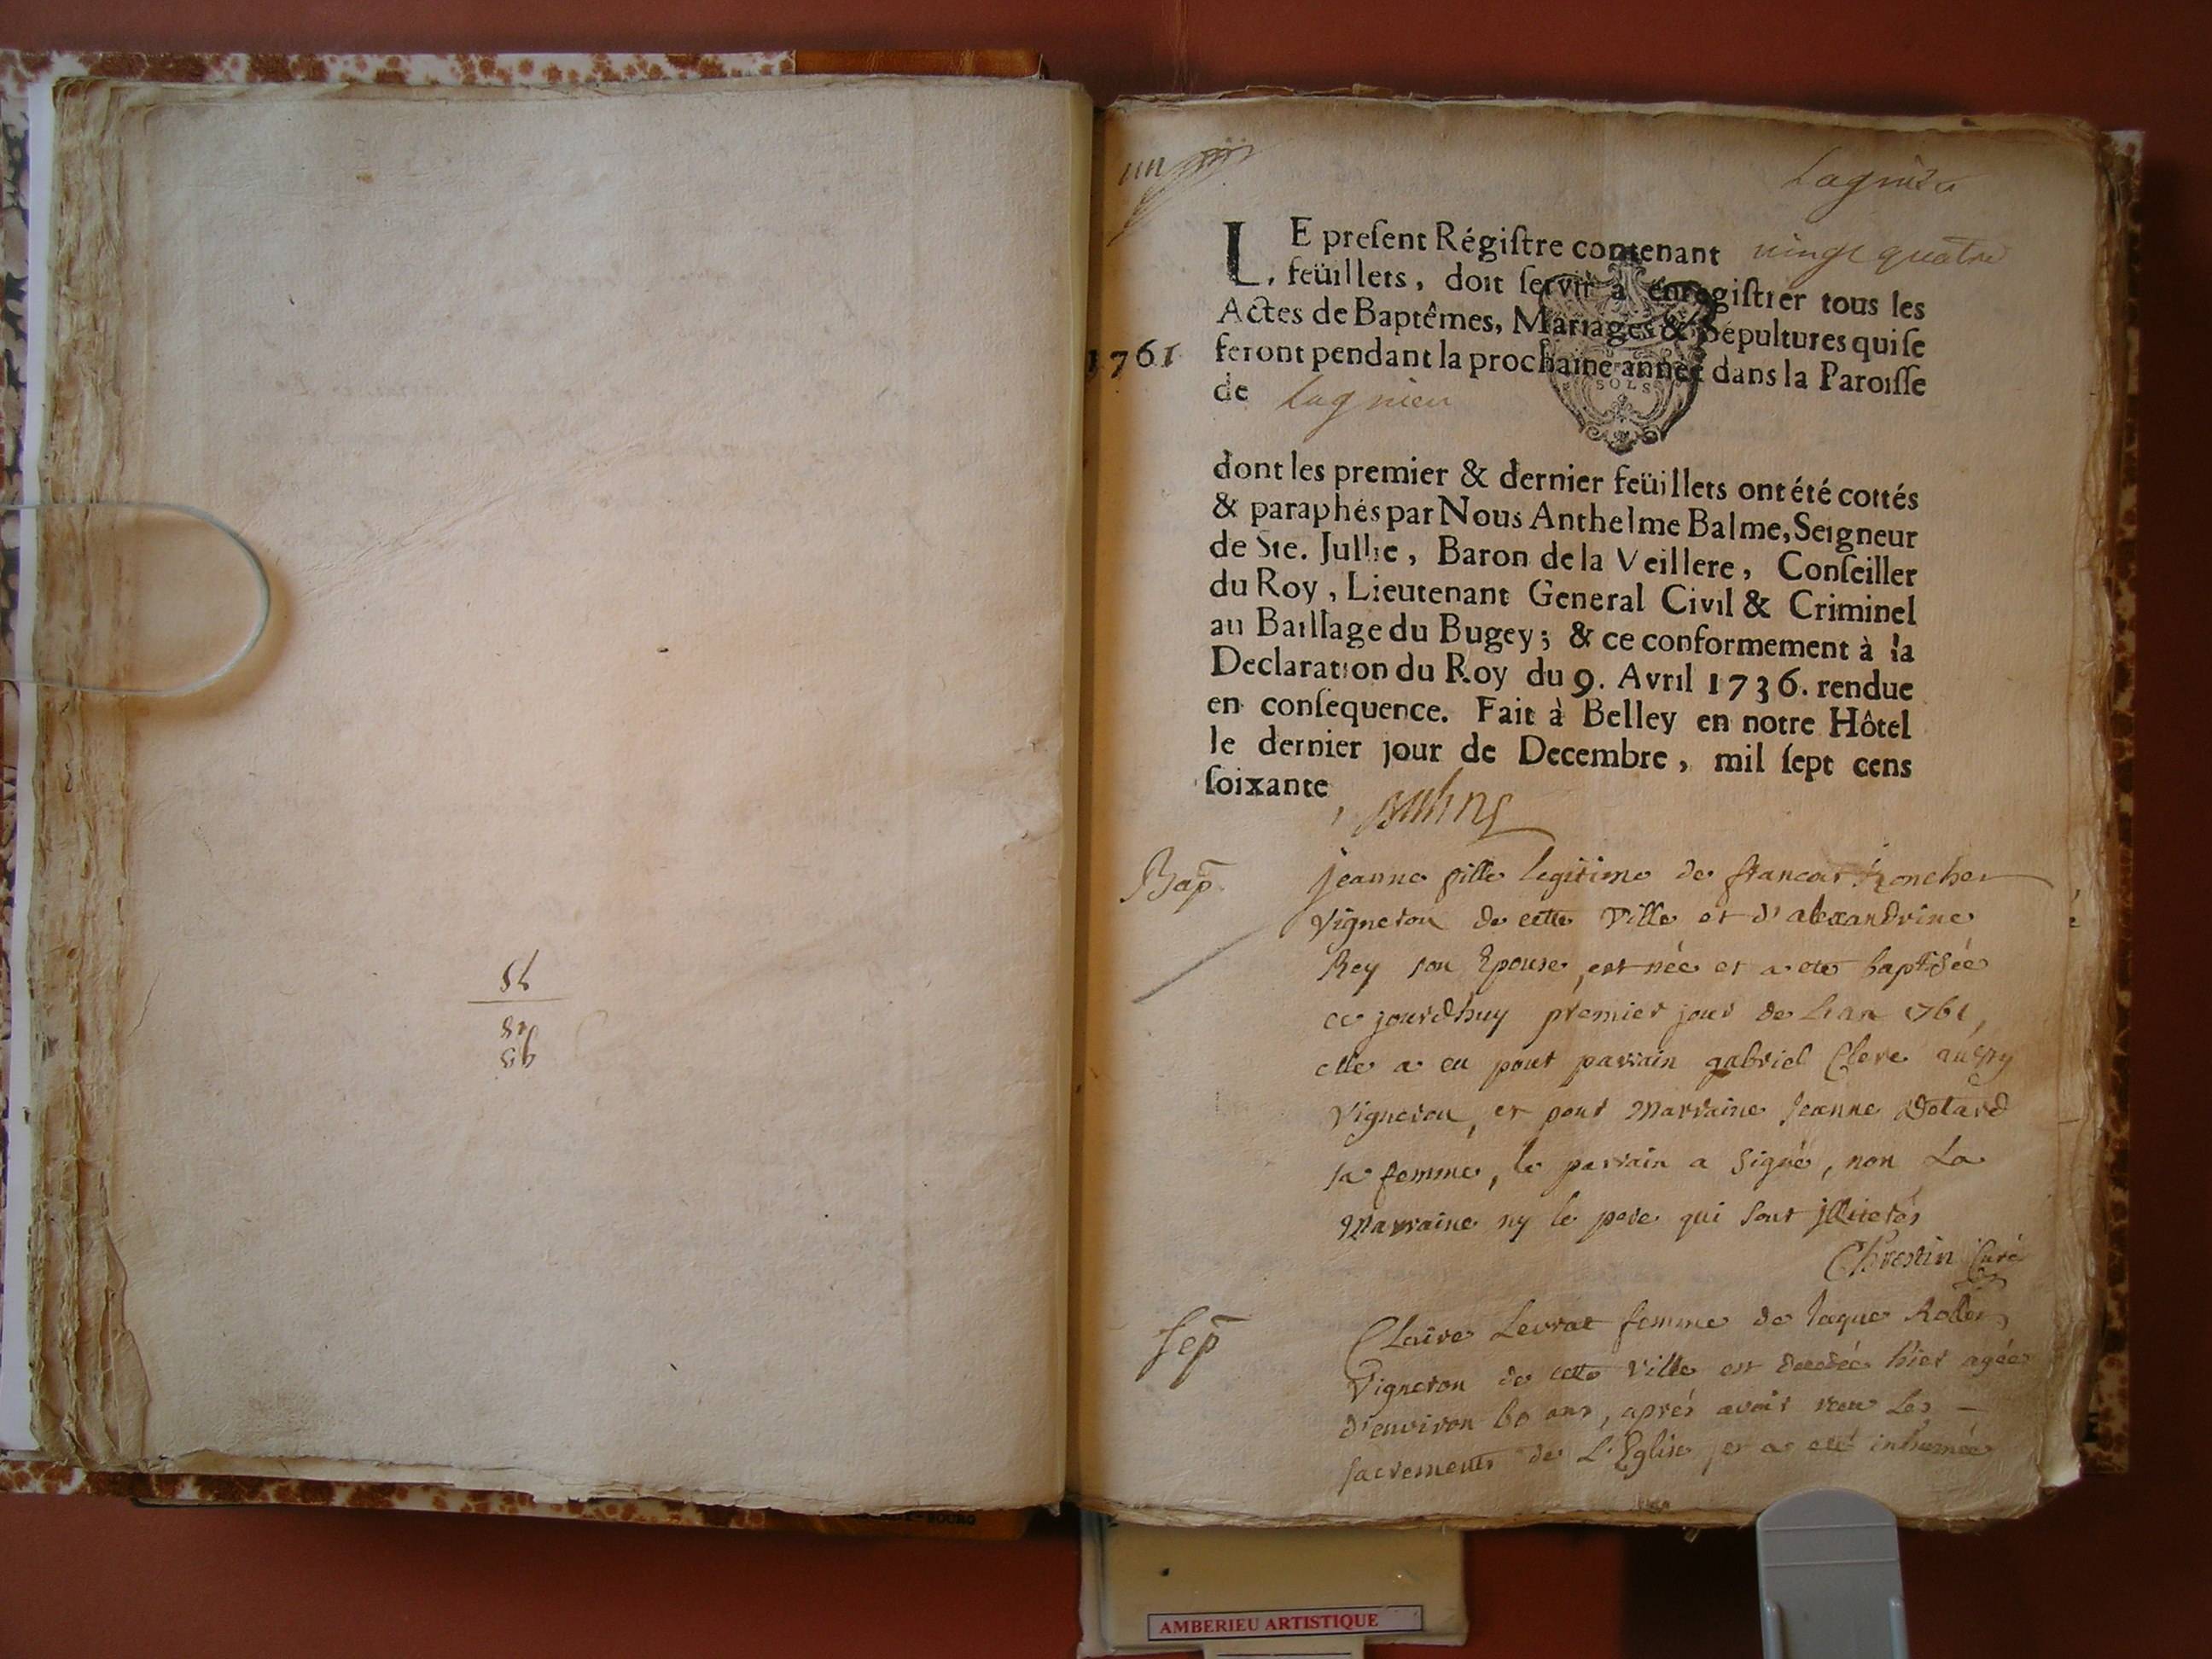 Lagnieu
LE preſent Régiſtre contenant vingt quatre
feüillets, doit ſervir à enregiſtrer tous les
Actes de Baptêmes, Mariages & Sépultures qui ſe
1761 feront pendant la prochaine année dans la Paroiſſe
de Lagnieu
SOLS
dont les premier & dernier feüillets ont été cottés
& paraphés par Nous Anthelme Balme, Seigneur
de Ste. Jullie, Baron de la Veillere, Conſeiller
du Roy, Lieutenant General Civil & Criminel
au Baillage du Bugey; & ce conformement à la
Declaration du Roy du 9. Avril 1736. rendue
en conſequence. Fait à Belley en notre Hôtel
le dernier jour de Decembre, mil ſept cens
ſoixante
Balme
Bap
jeanne fille legitime de francois
Vigneron de cette Ville et d'alexandrine
Rey son Epouse, est née et a ete baptisée
ce jourdhuy premier jour de Lan 1761,
elle a eu pour parrain gabriel Clerc aussy
Vigneron, et pour Marraine Jeanne
sa femme, le parrain a Signé, non La
Marraine ny le pere qui sont jlliterés
Chrestin Curé
Sep
Claire Levrat femme de Jaque
Vigneron de cette Ville est decedée hier agée
d'environ 60 ans, aprés avoir receu Les
sacrements de L'Eglise, et a eté inhumée
AMBERIEU ARTISTIQUE